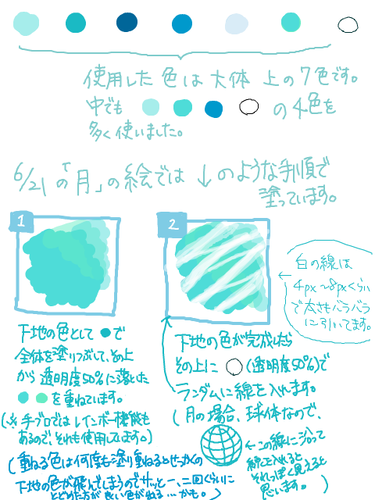 使用した色は大体 上の7色です。
中でも の4色を
多く使いました。
6/21の「月」の絵では ↓のような手順で
塗っています。
1
2
白の線は
4px〜8pxくらい
で太さもバラバラ
に引いてます。
下地の色として で
全体を塗りつぶして、その上
から透明度50%に落とした
を重ねています。
(※手ブロではレインボー機能も
あるので、それも使用してます。)
(重ねる色は何度も塗り重ねるとせっかくの
下地の色が飛んでしまうのでサッと一、二回くらいに
下地の色が完成したら
その上に (透明度50%)で
ランダムに線を入れます。
(月の場合、球体なので、
←この線にそって
線を入れると
それっぽく見えると
思います。)